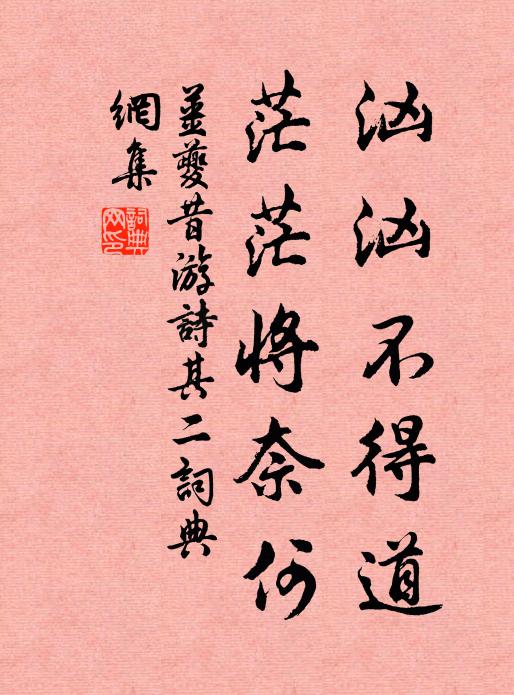 汹汹不得道
茫茫将奈何
姜夔昔游詩其二詞典
網集
詞典網印